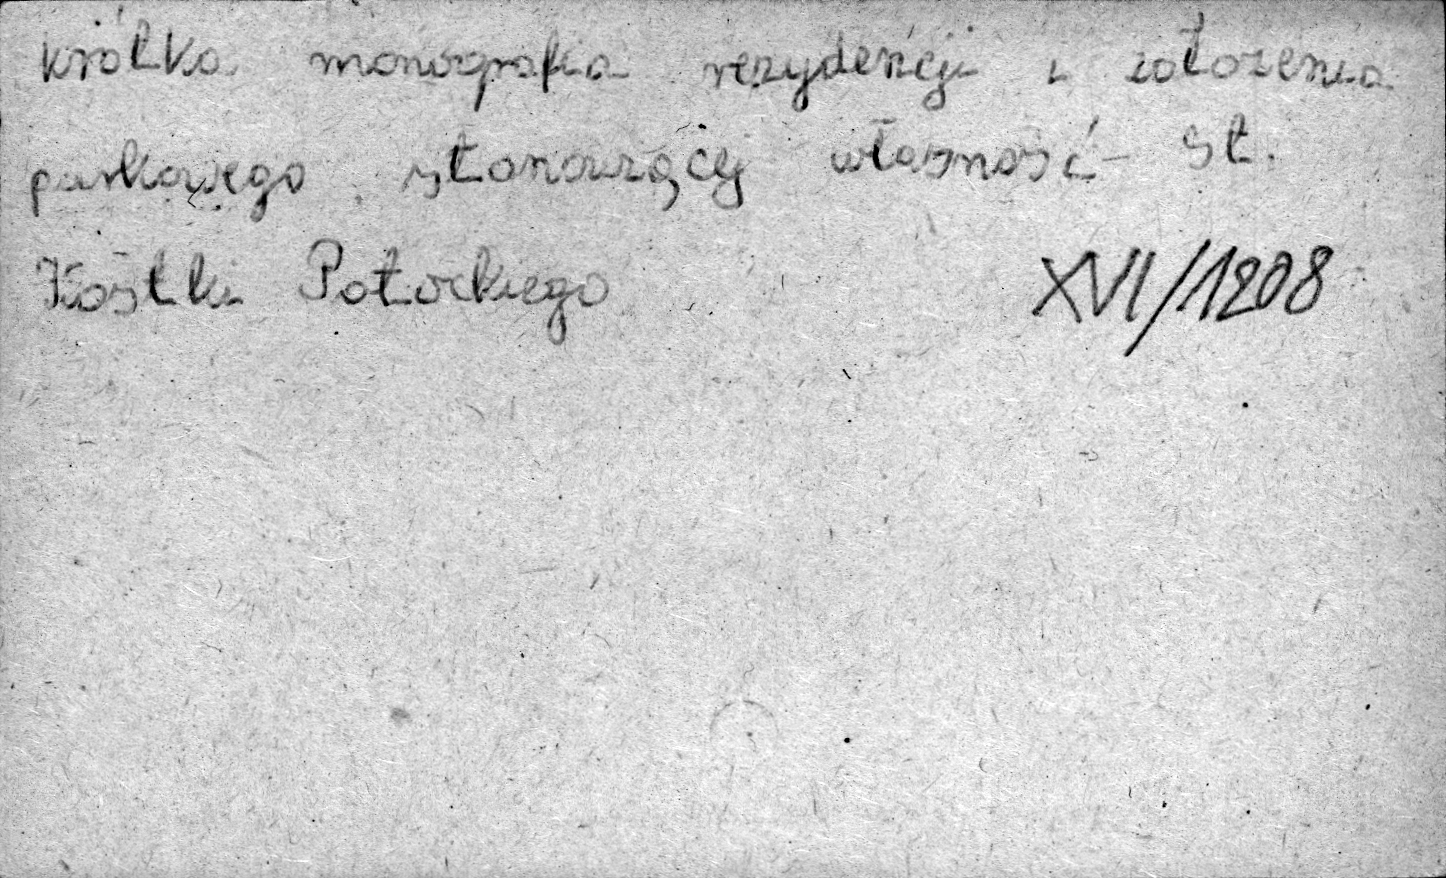 krótka monografia rezydencji i założenia
parkowego stanowiący własność St.
Kostki Potockiego XVI/1208